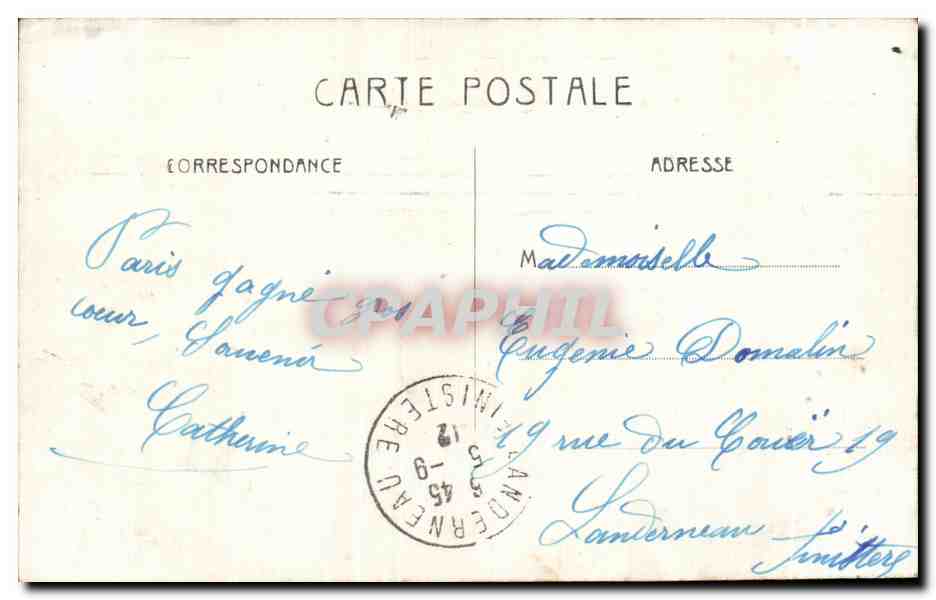 CARTE POSTALE
CORRESPONDANCE
ADRESSE
Paris gagné gros
coeur, Souvenir
Catherine
Mademoiselle
Eugenie Domalin
19 rue du Couër 19
Landerneau
Finistere
LANDERNEAU FINISTERE
12
5
-9
45
CPAPHIL